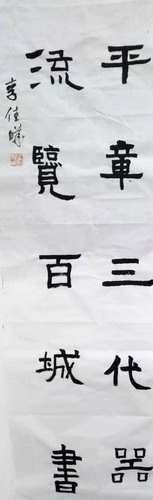 平章三代器
流覽百城書
李佳曦